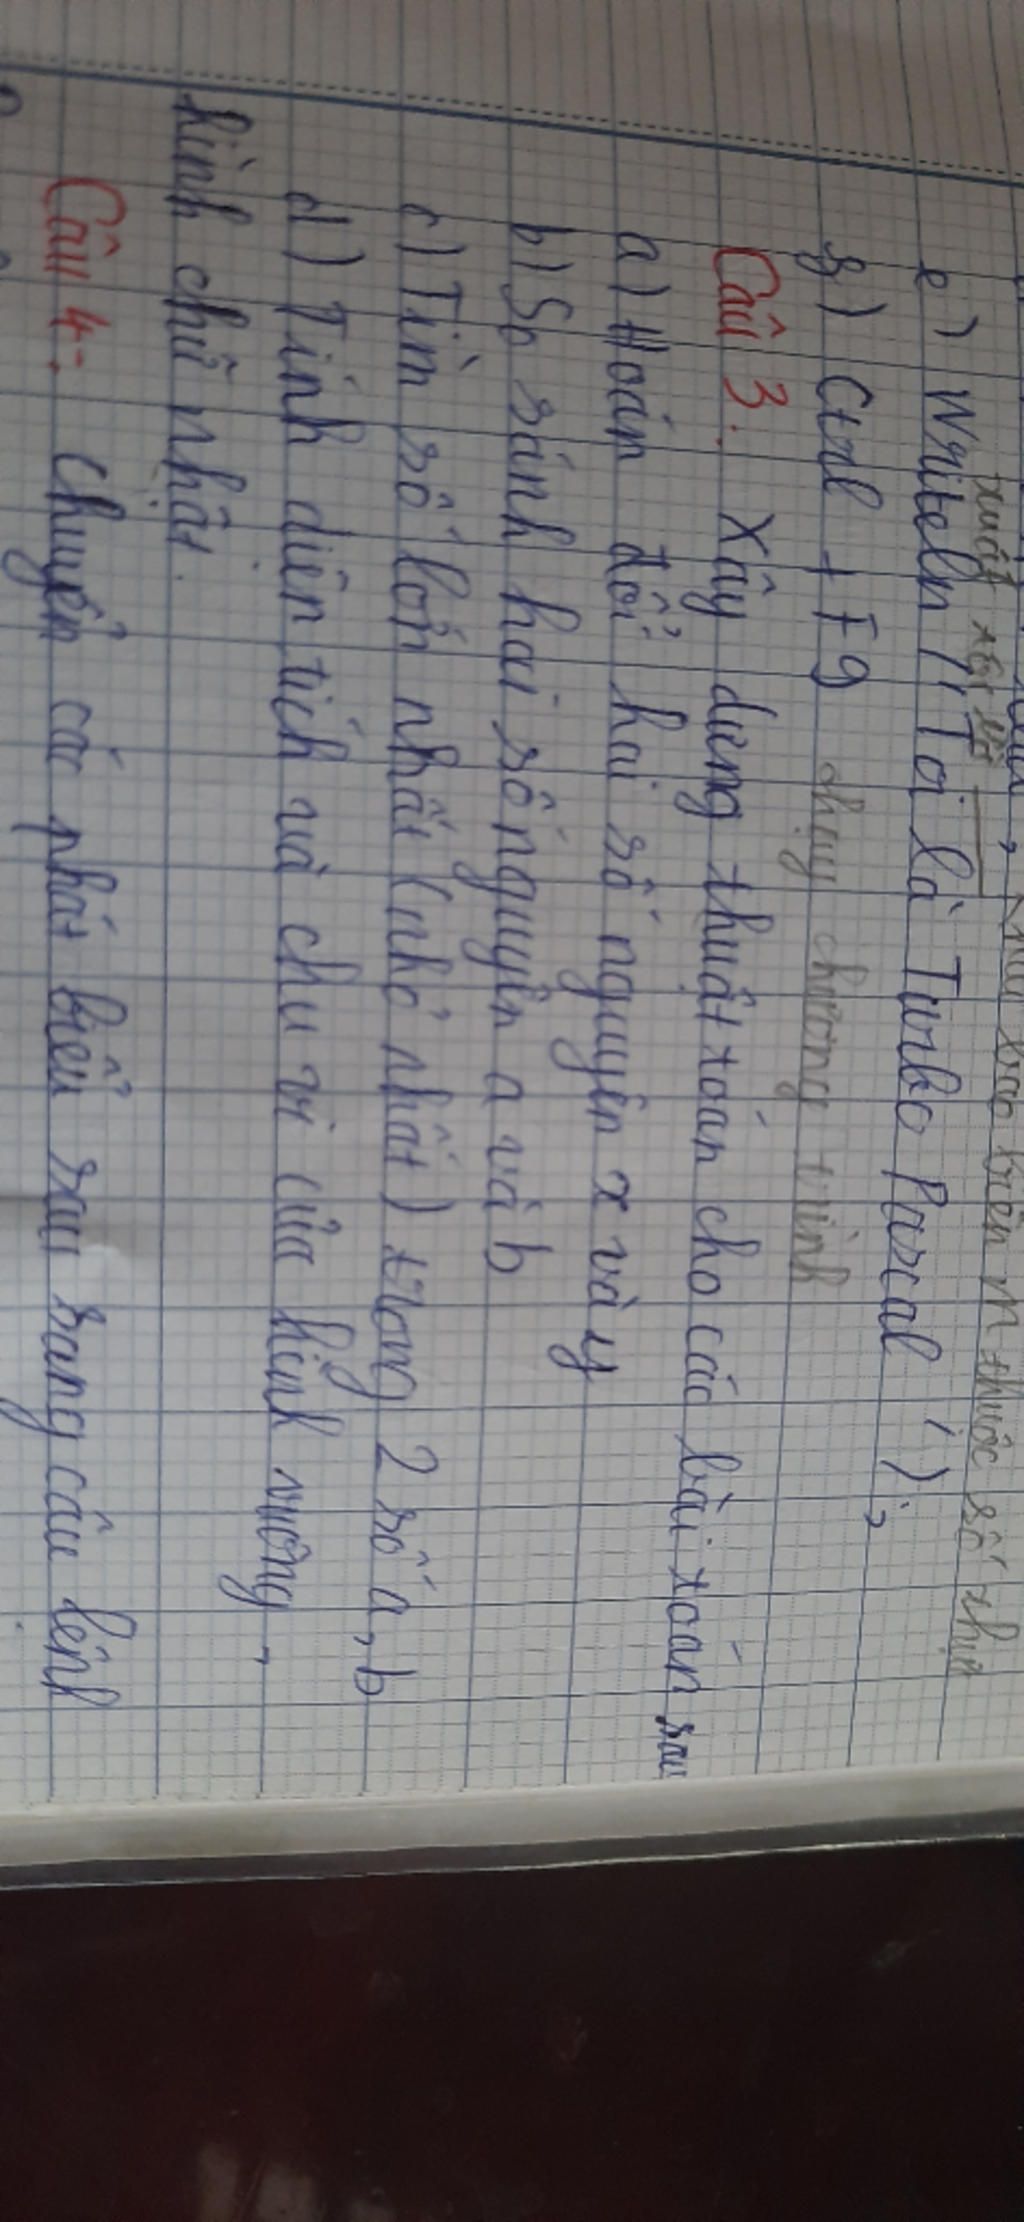 xuất xâu biến m thuộc số thực
e) Writeln ('Tôi là Turbo Pascal');
g) Ctrl + F9 chạy chương trình
Câu 3: Xây dựng thuật toán cho các bài toán sau
a) Hoán đổi hai số nguyên x và y
b) So sánh hai số nguyên a và b
c) Tìm số lớn nhất (nhỏ nhất) trong 2 số a, b
d) Tính diện tích và chu vi của hình vuông,
hình chữ nhật.
Câu 4: Chuyển các phát biểu sau sang câu lệnh